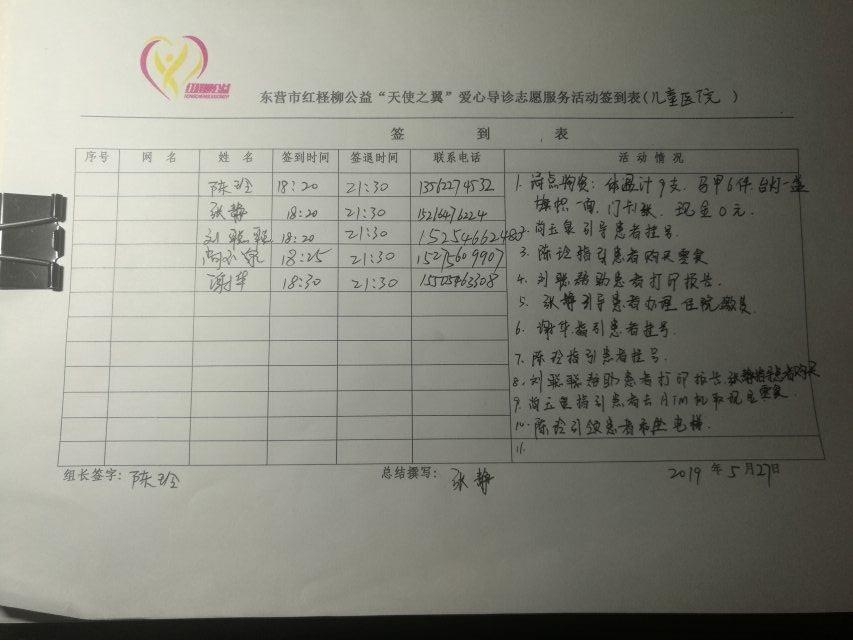 红柽柳公益
东营市红柽柳公益“天使之翼”爱心导诊志愿服务活动签到表(儿童医院)
签 到 表
序号 网名 姓名 签到时间 签退时间 联系电话 活动情况
陈玲 18:20 21:30 13562274532
张静 18:20 21:30 15216476224
刘聪聪 18:20 21:30
18:25 21:30 15275609907
谢华 18:30 21:30
1. 清点物资: 体温计9支. 马甲6件. 台灯一盏
旗帜一面, 现金0元.
2. 尚玉泉引导患者挂号.
3. 陈玲指引患者购买零食
4. 刘聪帮助患者打印报告.
5. 张静引导患者办理住院缴费.
6. 谢华指引患者挂号.
7. 陈玲指引患者挂号.
8. 刘聪聪帮助患者打印报告. 张静指导患者购买
零食.
9. 尚玉泉指引患者去ATM机取现金
10. 陈玲引领患者乘坐电梯.
11.
组长签字: 陈玲 总结撰写: 张静 2019年5月27日